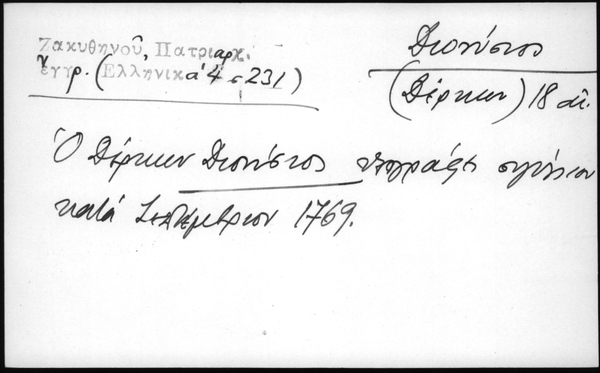 Ζακυθηνοῦ, Πατριαρχ.
ἔγγρ. (Ἑλληνικά 4 σ 231)
Διονύσιος
(Δέρκων) 18 αἰ.
Ὁ Δέρκων Διονύσιος ὑπογράφει σιγίλλιον
κατά Σεπτέμβριον 1769.